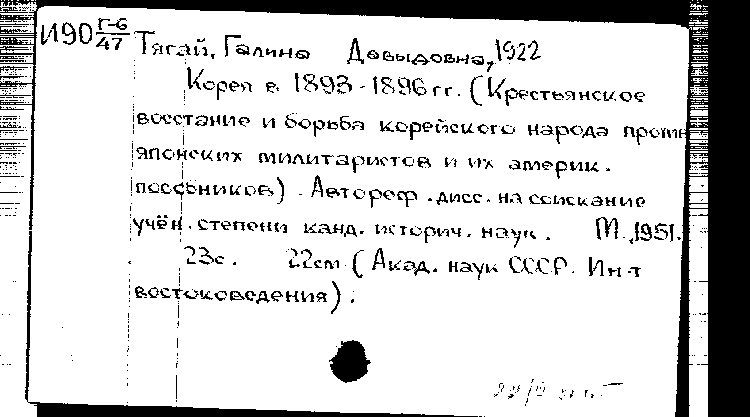 И90 Г-6/47 Тягай, Галина Давыдовна, 1922
Корея в 1893-1896 гг. (Крестьянское
восстание и борьба корейского народа против
японских милитаристов и их америк.
пособников). Автореф. дисс. на соискание
учён. степени канд. историч. наук. М., 1951.
23с. 22см (Акад. наук СССР. Ин-т
востоковедения).